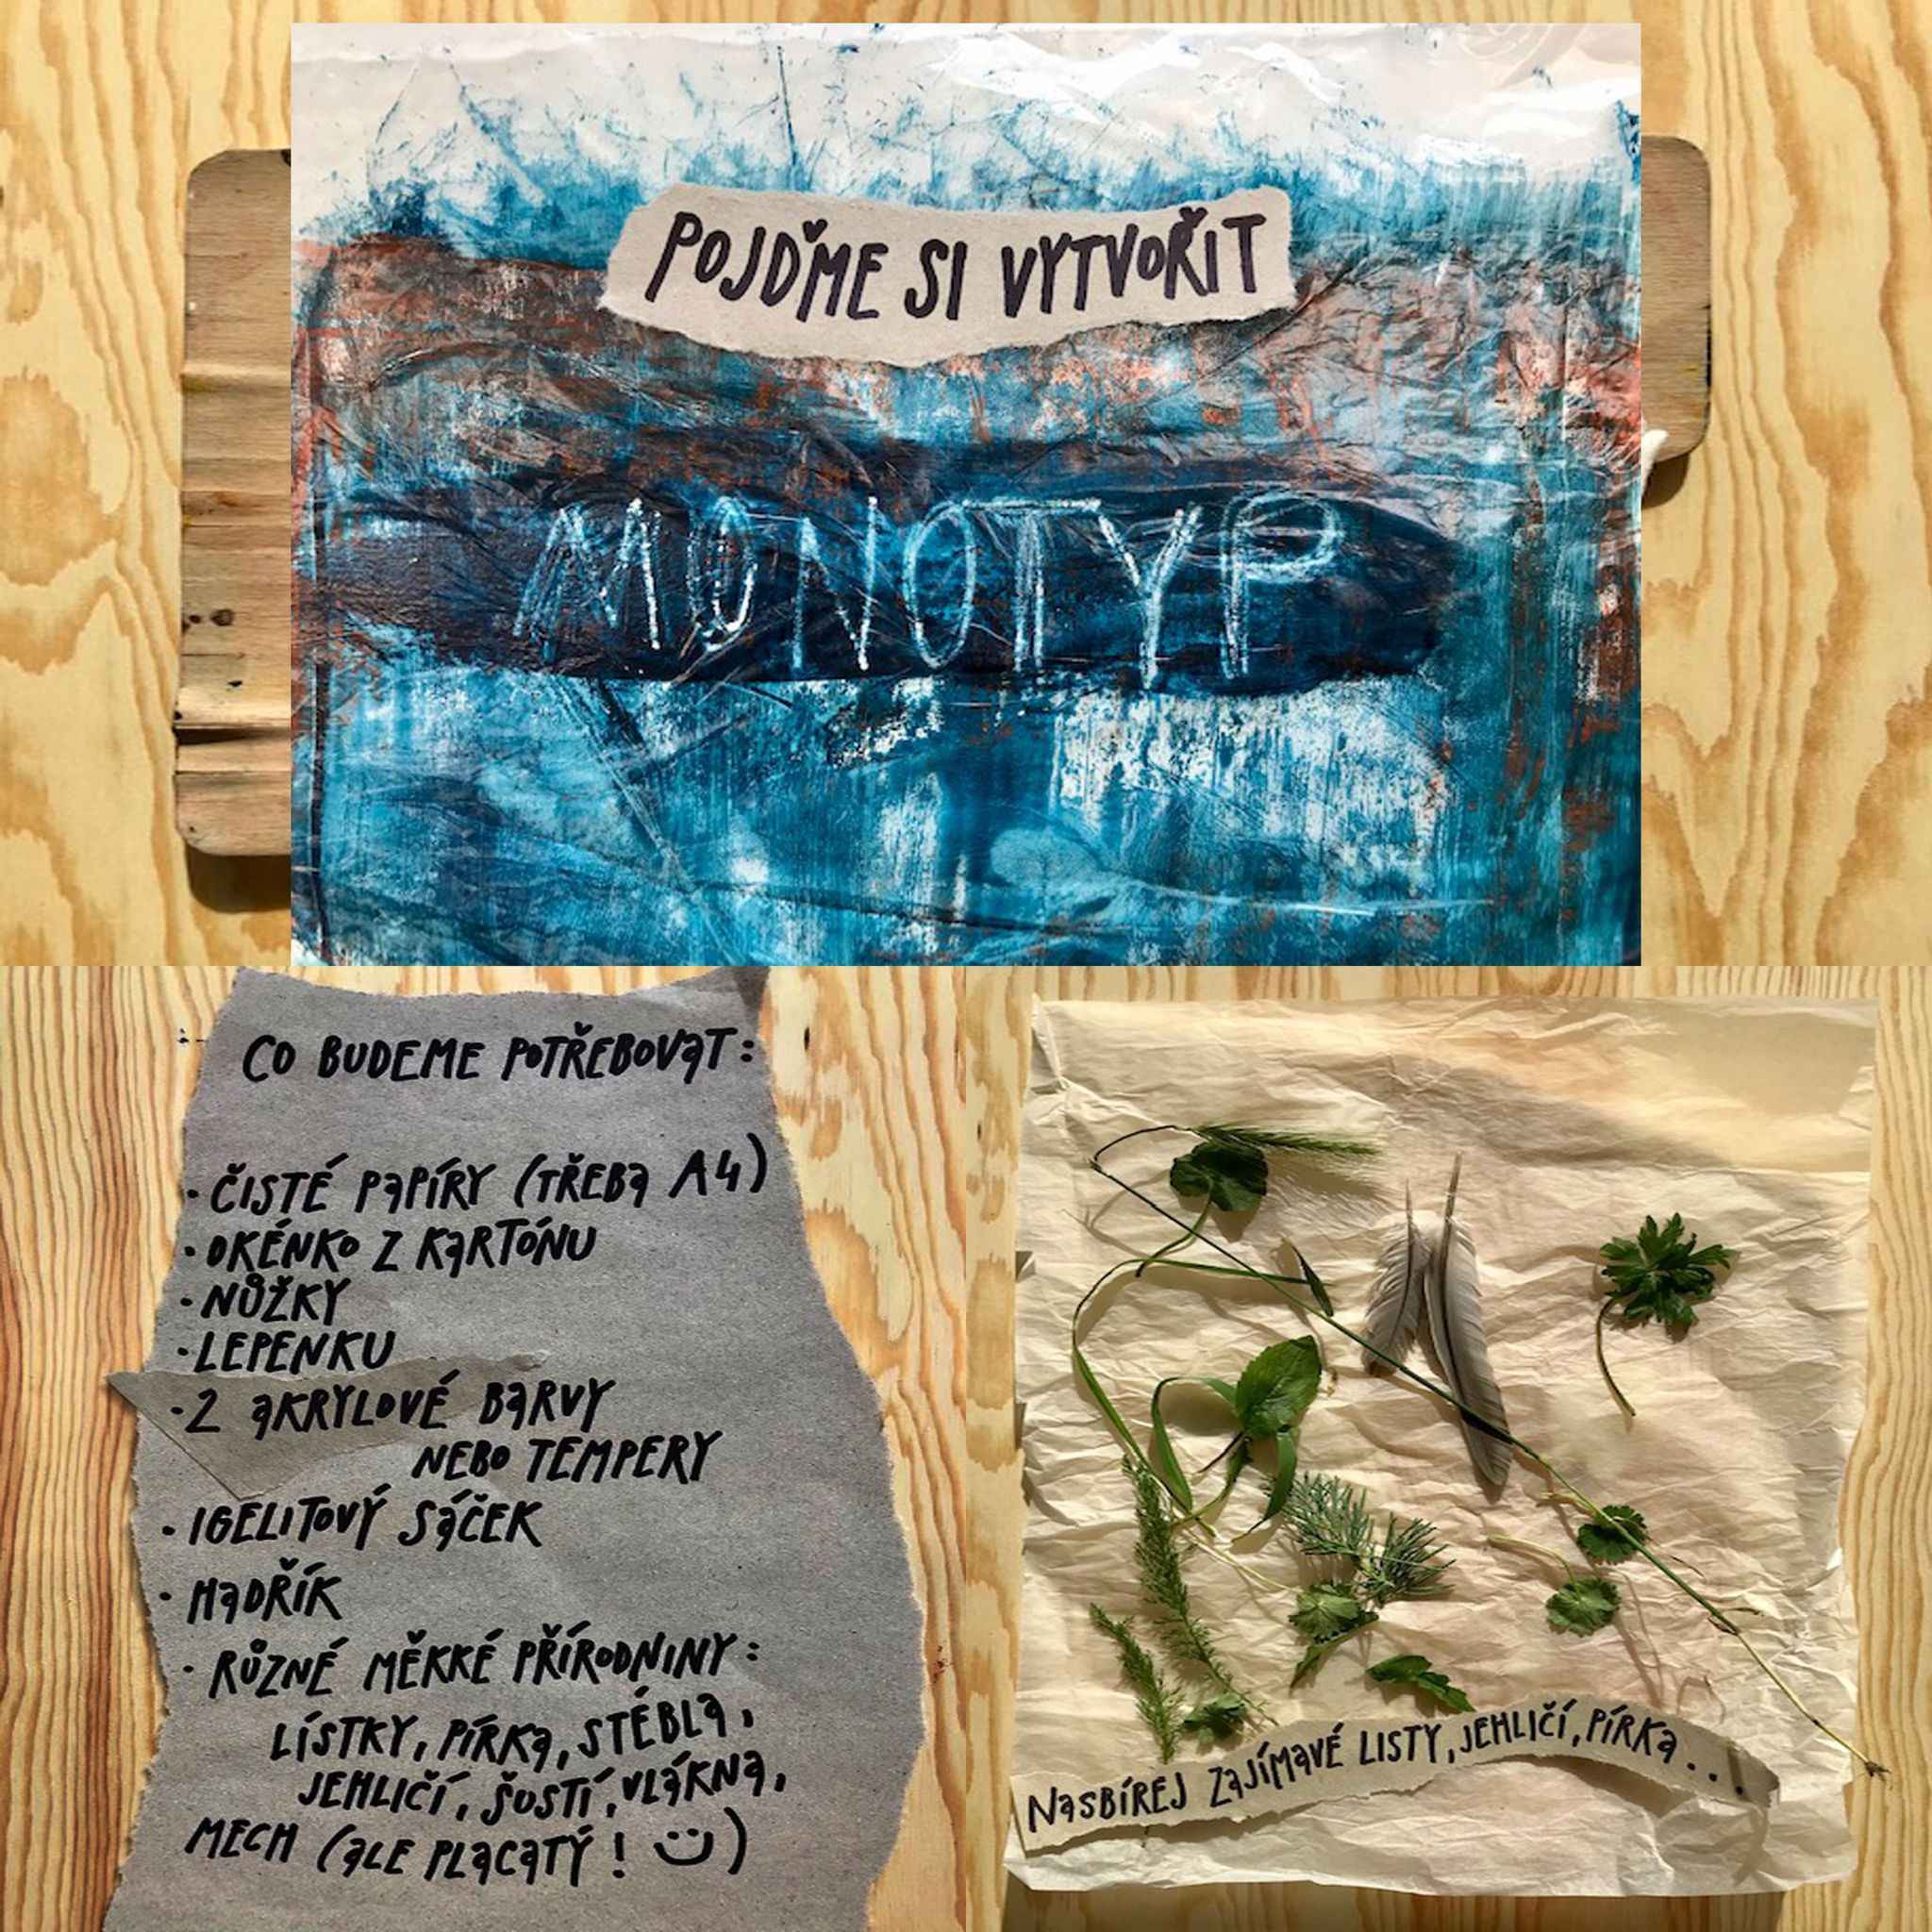 POJĎME SI VYTVOŘIT
MONOTYP
CO BUDEME POTŘEBOVAT:
· ČISTÉ PAPÍRY (TŘEBA A4)
· OKÉNKO Z KARTÓNU
· NŮŽKY
· LEPENKU
· 2 AKRYLOVÉ BARVY
NEBO TEMPERY
· IGELITOVÝ SÁČEK
· HADŘÍK
· RŮZNÉ MĚKKÉ PŘÍRODNINY:
LÍSTKY, PÍRKA, STÉBLA,
JEHLIČÍ, ŠUSTÍ, VLÁKNA,
MECH (ALE PLACATÝ! ☺)
NASBÍREJ ZAJÍMAVÉ LISTY, JEHLIČÍ, PÍRKA...